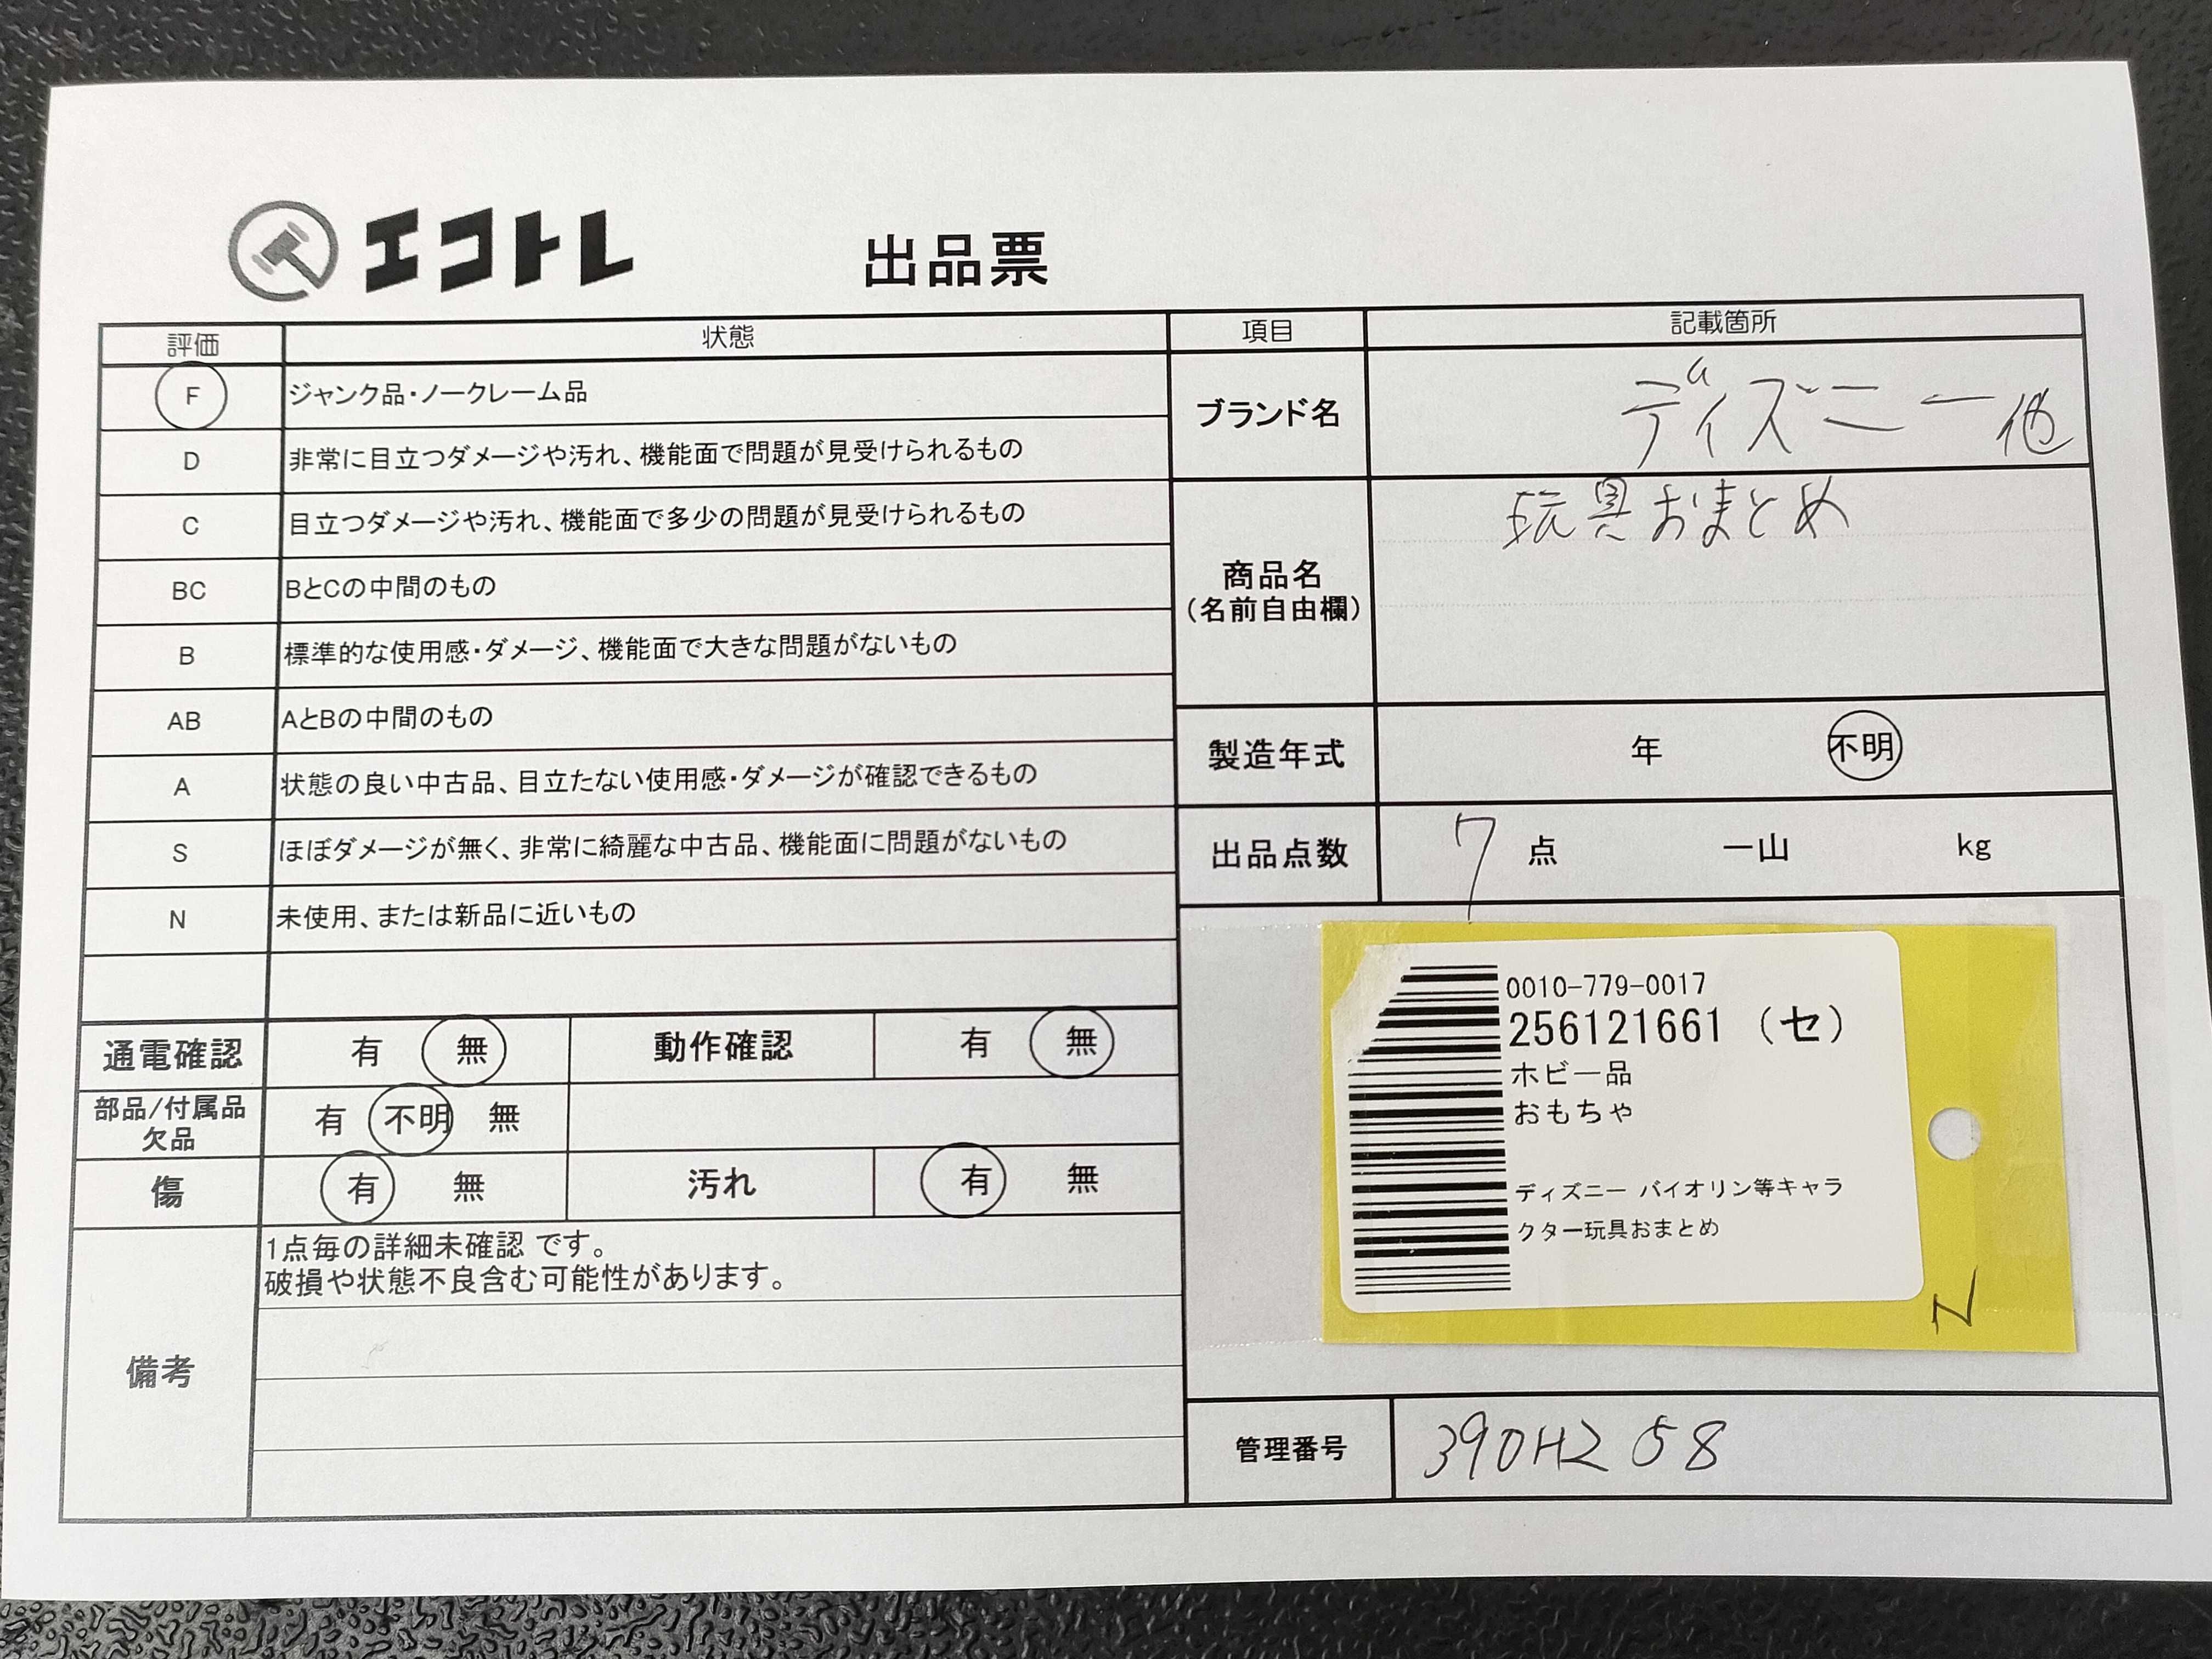 エコトレ
出品票
評価 状態
F ジャンク品・ノークレーム品
D 非常に目立つダメージや汚れ、機能面で問題が見受けられるもの
C 目立つダメージや汚れ、機能面で多少の問題が見受けられるもの
BC BとCの中間のもの
B 標準的な使用感・ダメージ、機能面で大きな問題がないもの
AB AとBの中間のもの
A 状態の良い中古品、目立たない使用感・ダメージが確認できるもの
S ほぼダメージが無く、非常に綺麗な中古品、機能面に問題がないもの
N 未使用、または新品に近いもの
通電確認 有 無 動作確認 有 無
部品/付属品
欠品
有 不明 無
傷 有 無 汚れ 有 無
備考
1点毎の詳細未確認 です。
破損や状態不良含む可能性があります。
項目 記載箇所
ブランド名 ディズニー他
商品名
(名前自由欄)
玩具おまとめ
製造年式 年 不明
出品点数 7 点 一山 kg
0010-779-0017
256121661 (セ)
ホビー品
おもちゃ
ディズニー バイオリン等キャラ
クター玩具おまとめ
N
管理番号 390H2 58